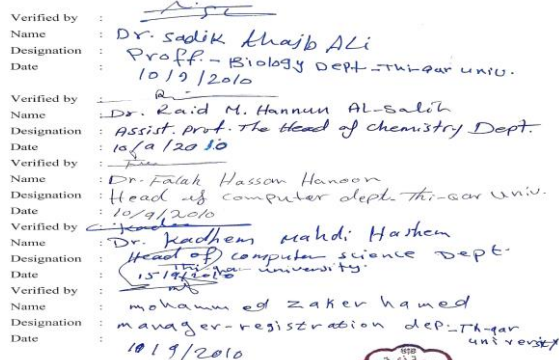 Verified by :
Name : Dr. Sadik Khajb Ali
Designation : Proff. - Biology Dept - Thi-qar univ.
Date : 10/9/2010
Verified by :
Name : Dr. Raid M. Hannun AL-Salih
Designation : Assist. Prof. The Head of chemistry Dept.
Date : 10/9/2010
Verified by :
Name : Dr. Falah Hassan Hanoon
Designation : Head of computer dept. Thi-qar univ.
Date : 10/9/2010
Verified by :
Name : Dr. Kadhem Mahdi Hashem
Designation : Head of computer science Dept.
Thi qar university.
Date : 15/9/2010
Verified by :
Name : mohammed zaker hamed
Designation : manager-registration dep_Th-qar
university
Date : 10/9/2010